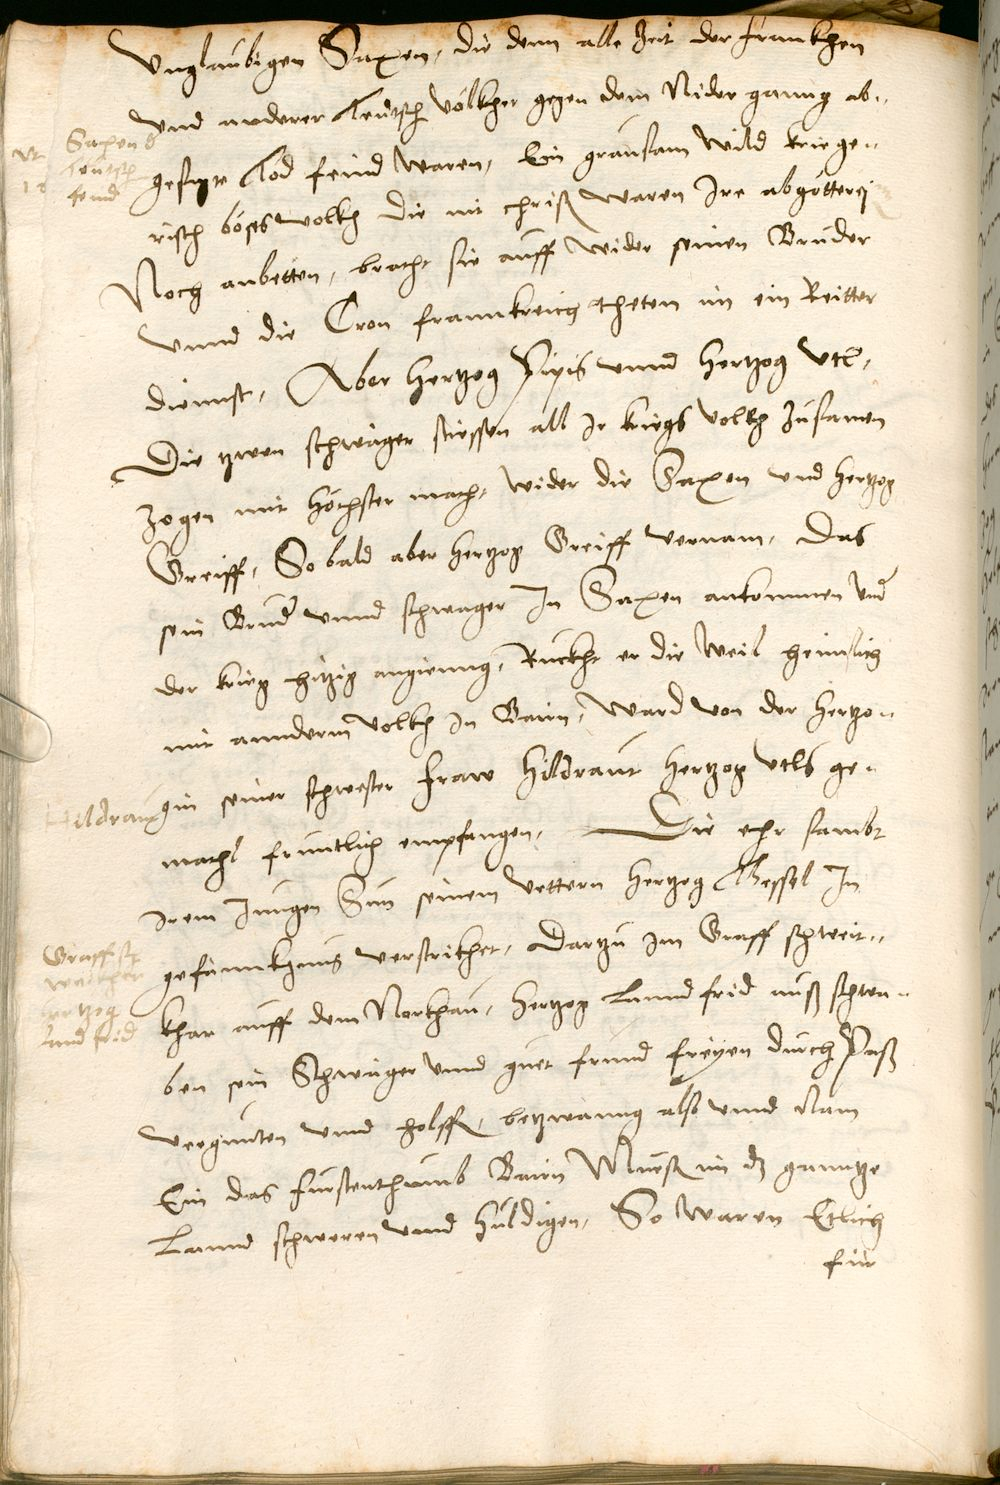 Vnglaubigen Saxen, die denn alle Zeit der Frankhen
vnd anderer Teutsch völkher gegen dem Nider ganng ab-
Saxen d
Teutsch
feind
gesagte Tod feind waren, Ein grausam wild kriege-
risch böses volkh die nit christ waren Ire abgötterej
Noch anbetten, bracht sie auff wider seinen Bruder
vnnd die Cron Frannkreich theten im ein Reitter
diennst, Aber Hertzog Pipis vnnd Hertzog Vtl,
Die zwen schwäger stiessen all Ir kriegs volkh zusamen
zogen mit höchster macht wider die Saxen vnd Hertzog
Greiff, So bald aber Hertzog Greiff vernam, Das
sein Brud vnnd schwager In Saxen ankommen vnd
der krieg hitzig angienng, Ruckht er die Weil heimlich
mit annderm volkh In Bairn, Ward von der Hertzo-
Hildraut
gin seiner schwester Fraw Hildraut Hertzog Vtls ge-
machl fruntlich empfangen, Die ehr sambt
Irem Jungen Sun seinem Vettern Hertzog Thessel In
Graff sch
weikher
hertzog
Lundfrid
gefännkhnus verstrikhet, Dartzu im Graff schweit-
khar auff dem Norkhau, Hertzog Lanndfrid auß schwa-
ben sein Schwäger vnnd guet frund freyen durch Paß
vergunten vnnd holffen, betzwanng also vnnd Nam
Ein das Furstenthumb Bairn Muest im dz ganntze
Lannd schweren vnnd huldigen, So waren Etlich
für